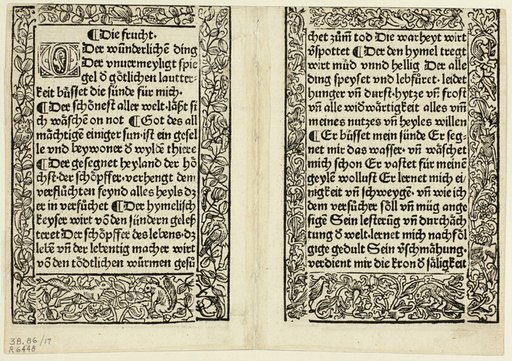 ¶ Die frucht.
O Der wūnderlichē ding
Der vnuermeyligt spie
gel d̄ götlichen lautter-
keit büsset die sünde für mich.
¶ Der schönest aller welt. läßt si
ch wäschē on not ¶ Got des all
mächtigē einiger sun. ist ein gesel
le vnd beywoner d̄ wyldē thiere
¶ Der gesegnet heyland der hö
chst. der schöpffer. verhengt dem
verflüchten feynd alles heyls dz
er in versüchet ¶ Der hymelisch
keyser wirt võ den sündern geles
teret Der schöpffer des lebens. dz
lebē vñ der lebentig macher wirt
võ den tödtlichen würmen gesü
chet zūm tod Die warheyt wirt
v̄spottet ¶ Der den hymel tregt
wirt müd vnnd hellig Der alle
ding speyset vnd lebfüret. leidet
hunger vñ durst. hytze vñ frost
vñ alle widwärtigkeit alles vm̄
meines nutzes vñ heyles willen
¶ Er büsset mein sünde Er seg
net mir das wasser. vñ wäschet
mich schon Er vastet für meinē
geylē wollust Er lernet mich ei
nigkeit vñ schweygē. vñ wie ich
dem versücher söll vñ müg ange
sige Sein lesterūg vñ durchäch
tung d̄ welt. lernet mich nachfol
gige gedult Sein v̄schmähung.
verdient mir die kron d̄ säligkeit
38.86/17
R6448